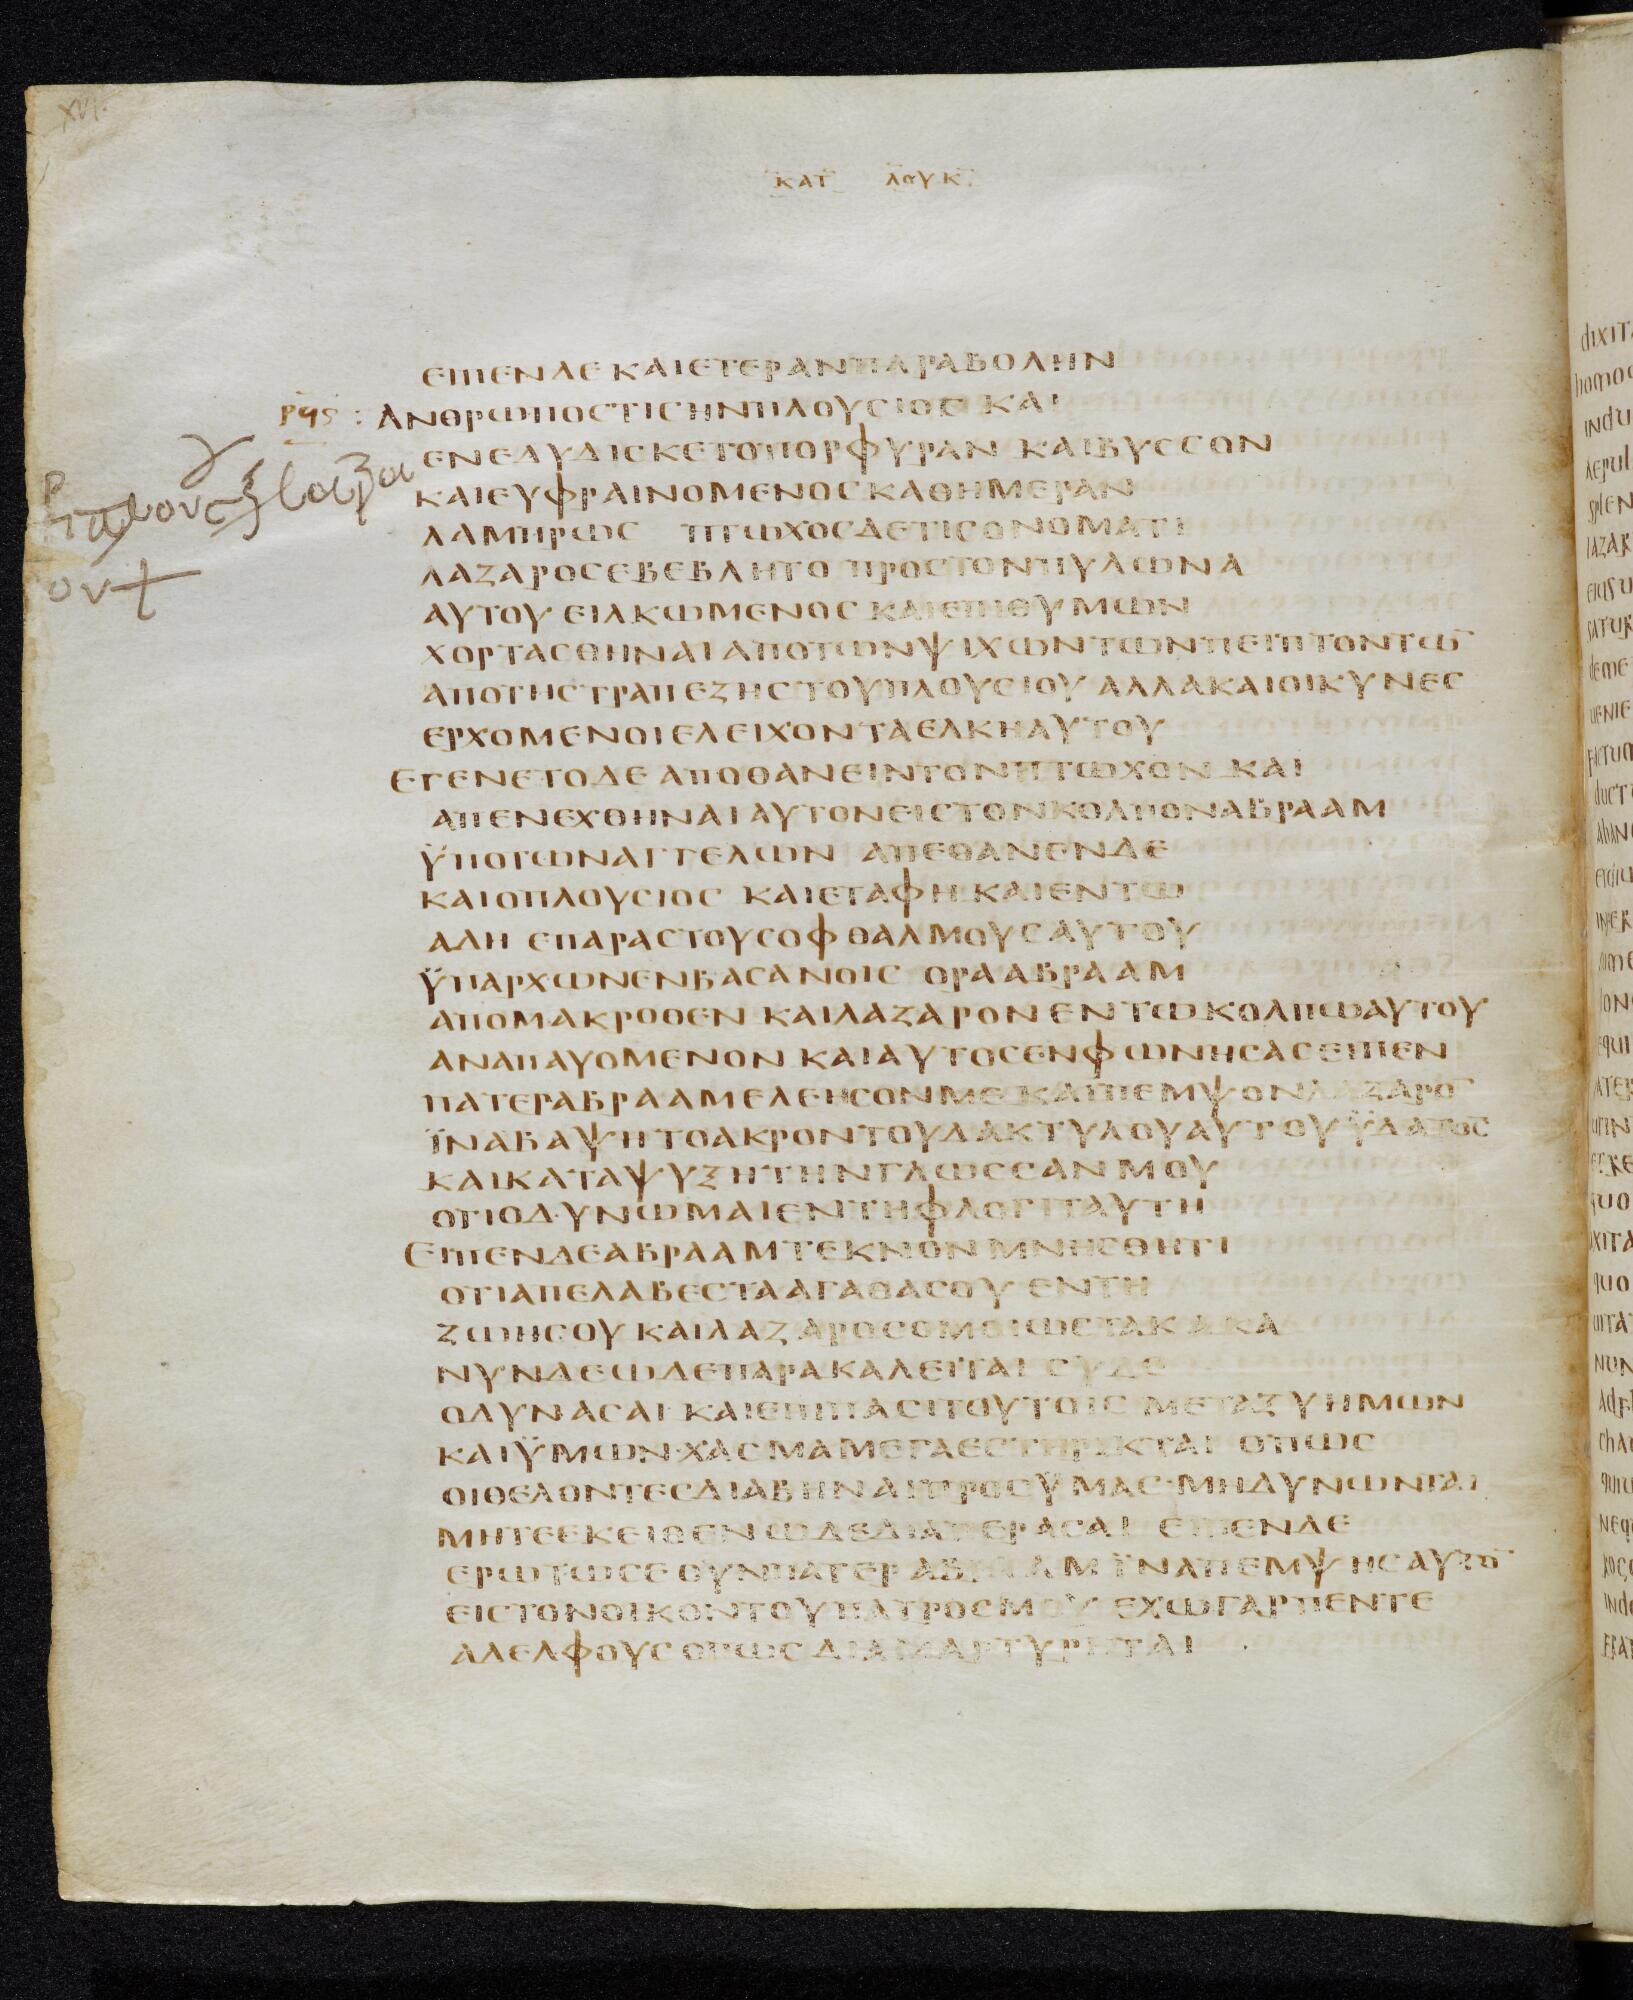 XVI.
ΚΑΤ ΛΟΥΚ
ΕΙΠΕΝΔΕΚΑΙΕΤΕΡΑΝΠΑΡΑΒΟΛΗΝ
ΑΝΘΡΩΠΟΣΤΙΣΗΝΠΛΟΥΣΙΟΣ ΚΑΙ
ΕΝΕΔΥΔΙΣΚΕΤΟΠΟΡΦΥΡΑΝ ΚΑΙΒΥΣΣΟΝ
ΚΑΙΕΥΦΡΑΙΝΟΜΕΝΟΣΚΑΘΗΜΕΡΑΝ
ΛΑΜΠΡΩΣ ΠΤΩΧΟΣΔΕΤΙΣΟΝΟΜΑΤΙ
ΛΑΖΑΡΟΣΕΒΕΒΛΗΤΟ ΠΡΟΣΤΟΝΠΥΛΩΝΑ
ΑΥΤΟΥ ΕΙΛΚΩΜΕΝΟΣ ΚΑΙΕΠΙΘΥΜΩΝ
ΧΟΡΤΑΣΘΗΝΑΙΑΠΟΤΩΝΨΙΧΩΝΤΩΝΠΕΙΠΤΟΝΤΩ̅
ΑΠΟΤΗΣΤΡΑΠΕΖΗΣΤΟΥΠΛΟΥΣΙΟΥ ΑΛΛΑΚΑΙΟΙΚΥΝΕΣ
ΕΡΧΟΜΕΝΟΙΕΛΕΙΧΟΝΤΑΕΛΚΗΑΥΤΟΥ
ΕΓΕΝΕΤΟΔΕ ΑΠΟΘΑΝΕΙΝΤΟΝΠΤΩΧΟΝ ΚΑΙ
ΑΠΕΝΕΧΘΗΝΑΙΑΥΤΟΝΕΙΣΤΟΝΚΟΛΠΟΝΑΒΡΑΑΜ
ΫΠΟΤΩΝΑΓΓΕΛΩΝ ΑΠΕΘΑΝΕΝΔΕ
ΚΑΙΟΠΛΟΥΣΙΟΣ ΚΑΙΕΤΑΦΗ ΚΑΙΕΝΤΩ
ΑΔΗ ΕΠΑΡΑΣΤΟΥΣΟΦΘΑΛΜΟΥΣΑΥΤΟΥ
ΫΠΑΡΧΩΝΕΝΒΑΣΑΝΟΙΣ ΟΡΑΑΒΡΑΑΜ
ΑΠΟΜΑΚΡΟΘΕΝ ΚΑΙΛΑΖΑΡΟΝΕΝΤΩΚΟΛΠΩΑΥΤΟΥ
ΑΝΑΠΑΥΟΜΕΝΟΝ ΚΑΙΑΥΤΟΣΕΝΦΩΝΗΣΑΣΕΙΠΕΝ
ΠΑΤΕΡΑΒΡΑΑΜΕΛΕΗΣΟΝΜΕ ΚΑΙΠΕΜΨΟΝΛΑΖΑΡΟ̅
ΪΝΑΒΑΨΗΤΟΑΚΡΟΝΤΟΥΔΑΚΤΥΛΟΥΑΥΤΟΥΫΔΑΤΟΣ
ΚΑΙΚΑΤΑΨΥΞΗΤΗΝΓΛΩΣΣΑΝΜΟΥ
ΟΤΙΟΔΥΝΩΜΑΙΕΝΤΗΦΛΟΓΙΤΑΥΤΗ
ΕΙΠΕΝΔΕΑΒΡΑΑΜΤΕΚΝΟΝΜΝΗΣΘΗΤΙ
ΟΤΙΑΠΕΛΑΒΕΣΤΑΑΓΑΘΑΣΟΥ ΕΝΤΗ
ΖΩΗΣΟΥ ΚΑΙΛΑΖΑΡΟΣΟΜΟΙΩΣΤΑΚΑΚΑ
ΝΥΝΔΕΩΔΕΠΑΡΑΚΑΛΕΙΤΑΙ ΣΥΔΕ
ΟΔΥΝΑΣΑΙ· ΚΑΙΕΠΙΠΑΣΙΤΟΥΤΟΙΣ ΜΕΤΑΞΥΗΜΩΝ
ΚΑΙΫΜΩΝ·ΧΑΣΜΑΜΕΓΑΕΣΤΗΡΙΚΤΑΙ ΟΠΩΣ
ΟΙΘΕΛΟΝΤΕΣΔΙΑΒΗΝΑΙΠΡΟΣΫΜΑΣ·ΜΗΔΥΝΩΝΤΑΙ
ΜΗΤΕΕΚΕΙΘΕΝΩΔΕΔΙΑΠΕΡΑΣΑΙ ΕΙΠΕΝΔΕ
ΕΡΩΤΩΣΕΟΥΝΠΑΤΕΡΑΒΡΑΑΜΪΝΑΠΕΜΨΗΣΑΥΤΟ̅
ΕΙΣΤΟΝΟΙΚΟΝΤΟΥΠΑΤΡΟΣΜΟΥ ΕΧΩΓΑΡΠΕΝΤΕ
ΑΔΕΛΦΟΥΣΟΠΩΣΔΙΑΜΑΡΤΥΡΗΤΑΙ